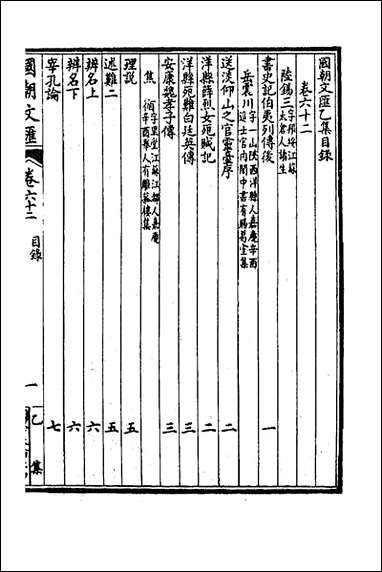 國朝文匯乙集目錄
卷六十二
陸錫三 字 江蘇太倉人諸生
書史記伯夷列傳後 一
岳震川 字 山陝西洋縣人嘉慶辛酉進士官內閣中書有賜葛堂集
送淡仰山之官靈臺序 二
洋縣薛烈女死賊記 二
洋縣死難白廷英傳 三
安康魏孝子傳 三
焦循 字里堂江蘇江都人嘉慶辛酉舉人有雕菰樓集
理說 五
述難二 五
辨名上 六
辨名下 六
宰孔論 七
國朝文匯 卷六十二 目錄 一 乙集